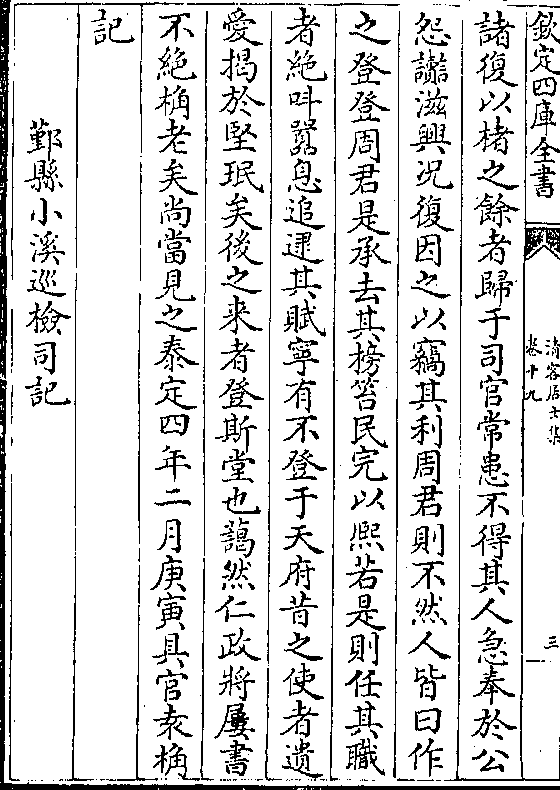 欽定四庫全書
清容居士集
卷十九
三
諸復以楮之餘者歸于司官常患不得其人急奉於公
怨讟滋興況復因之以竊其利周君則不然人皆曰作
之登登周君是承去其榜笞民完以熙若是則任其職
者絶呌嚚息追逮其賦寧有不登于天府昔之使者遺
愛揭於堅珉矣後之来者登斯堂也藹然仁政將屢書
不絶桷老矣尚當見之泰定四年二月庚寅具官袁桷
記
鄞縣小溪巡檢司記